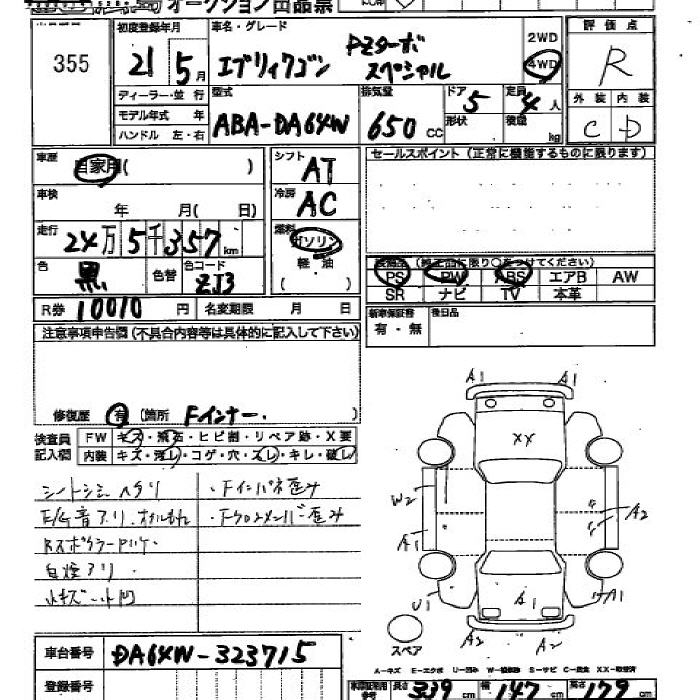 オークション出品票
355
初度登録年月
21 5月
車名・グレード
エブリィワゴン PZターボスペシャル
2WD
4WD
評価点
R
ディーラー・並行
モデル年式 年
ハンドル 左・右
型式
ABA-DA64W
排気量
650 CC
ドア 5
形状
定員 4人
積載 kg
外装 内装
C D
車歴
自家用( )
シフト
AT
セールスポイント(正常に機能するものに限ります)
車検
年 月( 日)
冷房
AC
走行
24万5千357km
燃料
ガソリン
軽・油
( )
色
黒
色替
色コード
ZJ3
PS PW ABS エアB AW
SR ナビ TV 本革
R券 10010円
名変期限 月 日
新車保証書
有・無
後日品
注意事項申告欄(不具合内容等は具体的に記入して下さい)
修復歴 有(箇所 Fインナー. )
検査員記入欄
FW キズ・飛石・ヒビ割・リペア跡・X要
内装 キズ・汚レ・コゲ・穴・スレ・キレ・破レ
・Fインパネ歪み
E/G音アリ.オイルもれ
・Fクロスメンバー歪み
白煙アリ
小キズ・凹
A1 A1
XX
W2
A1
A2
U1
A1
A1
A2 A2
スペア
車台番号
DA64W-323715
登録番号
A-キズ E-エクボ U-凹み W-補修跡 S-サビ C-腐食 XX-取替済
長さ 339cm 幅 147cm 高さ 179cm